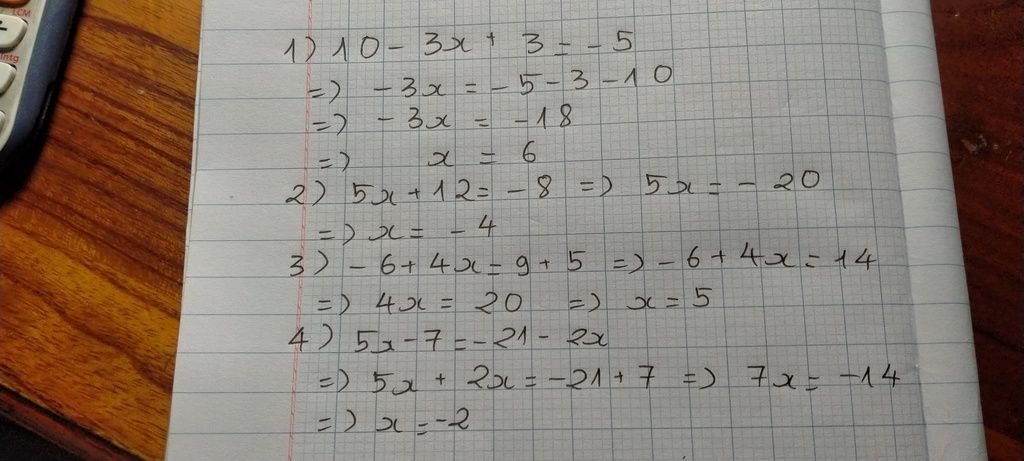 LCM
÷
Intg
1) 10 - 3x + 3 = - 5
=) - 3x = - 5 - 3 - 10
=) - 3x = -18
=) x = 6
2) 5x + 12 = - 8 =) 5x = - 20
=) x = - 4
3) - 6 + 4x = 9 + 5 =) - 6 + 4x = 14
=) 4x = 20 =) x = 5
4) 5x - 7 = - 21 - 2x
=) 5x + 2x = -21 + 7 =) 7x = -14
=) x = -2